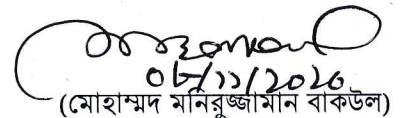 ০৮/১১/২০২০
(মোহাম্মদ মনিরুজ্জামান বাকউল)